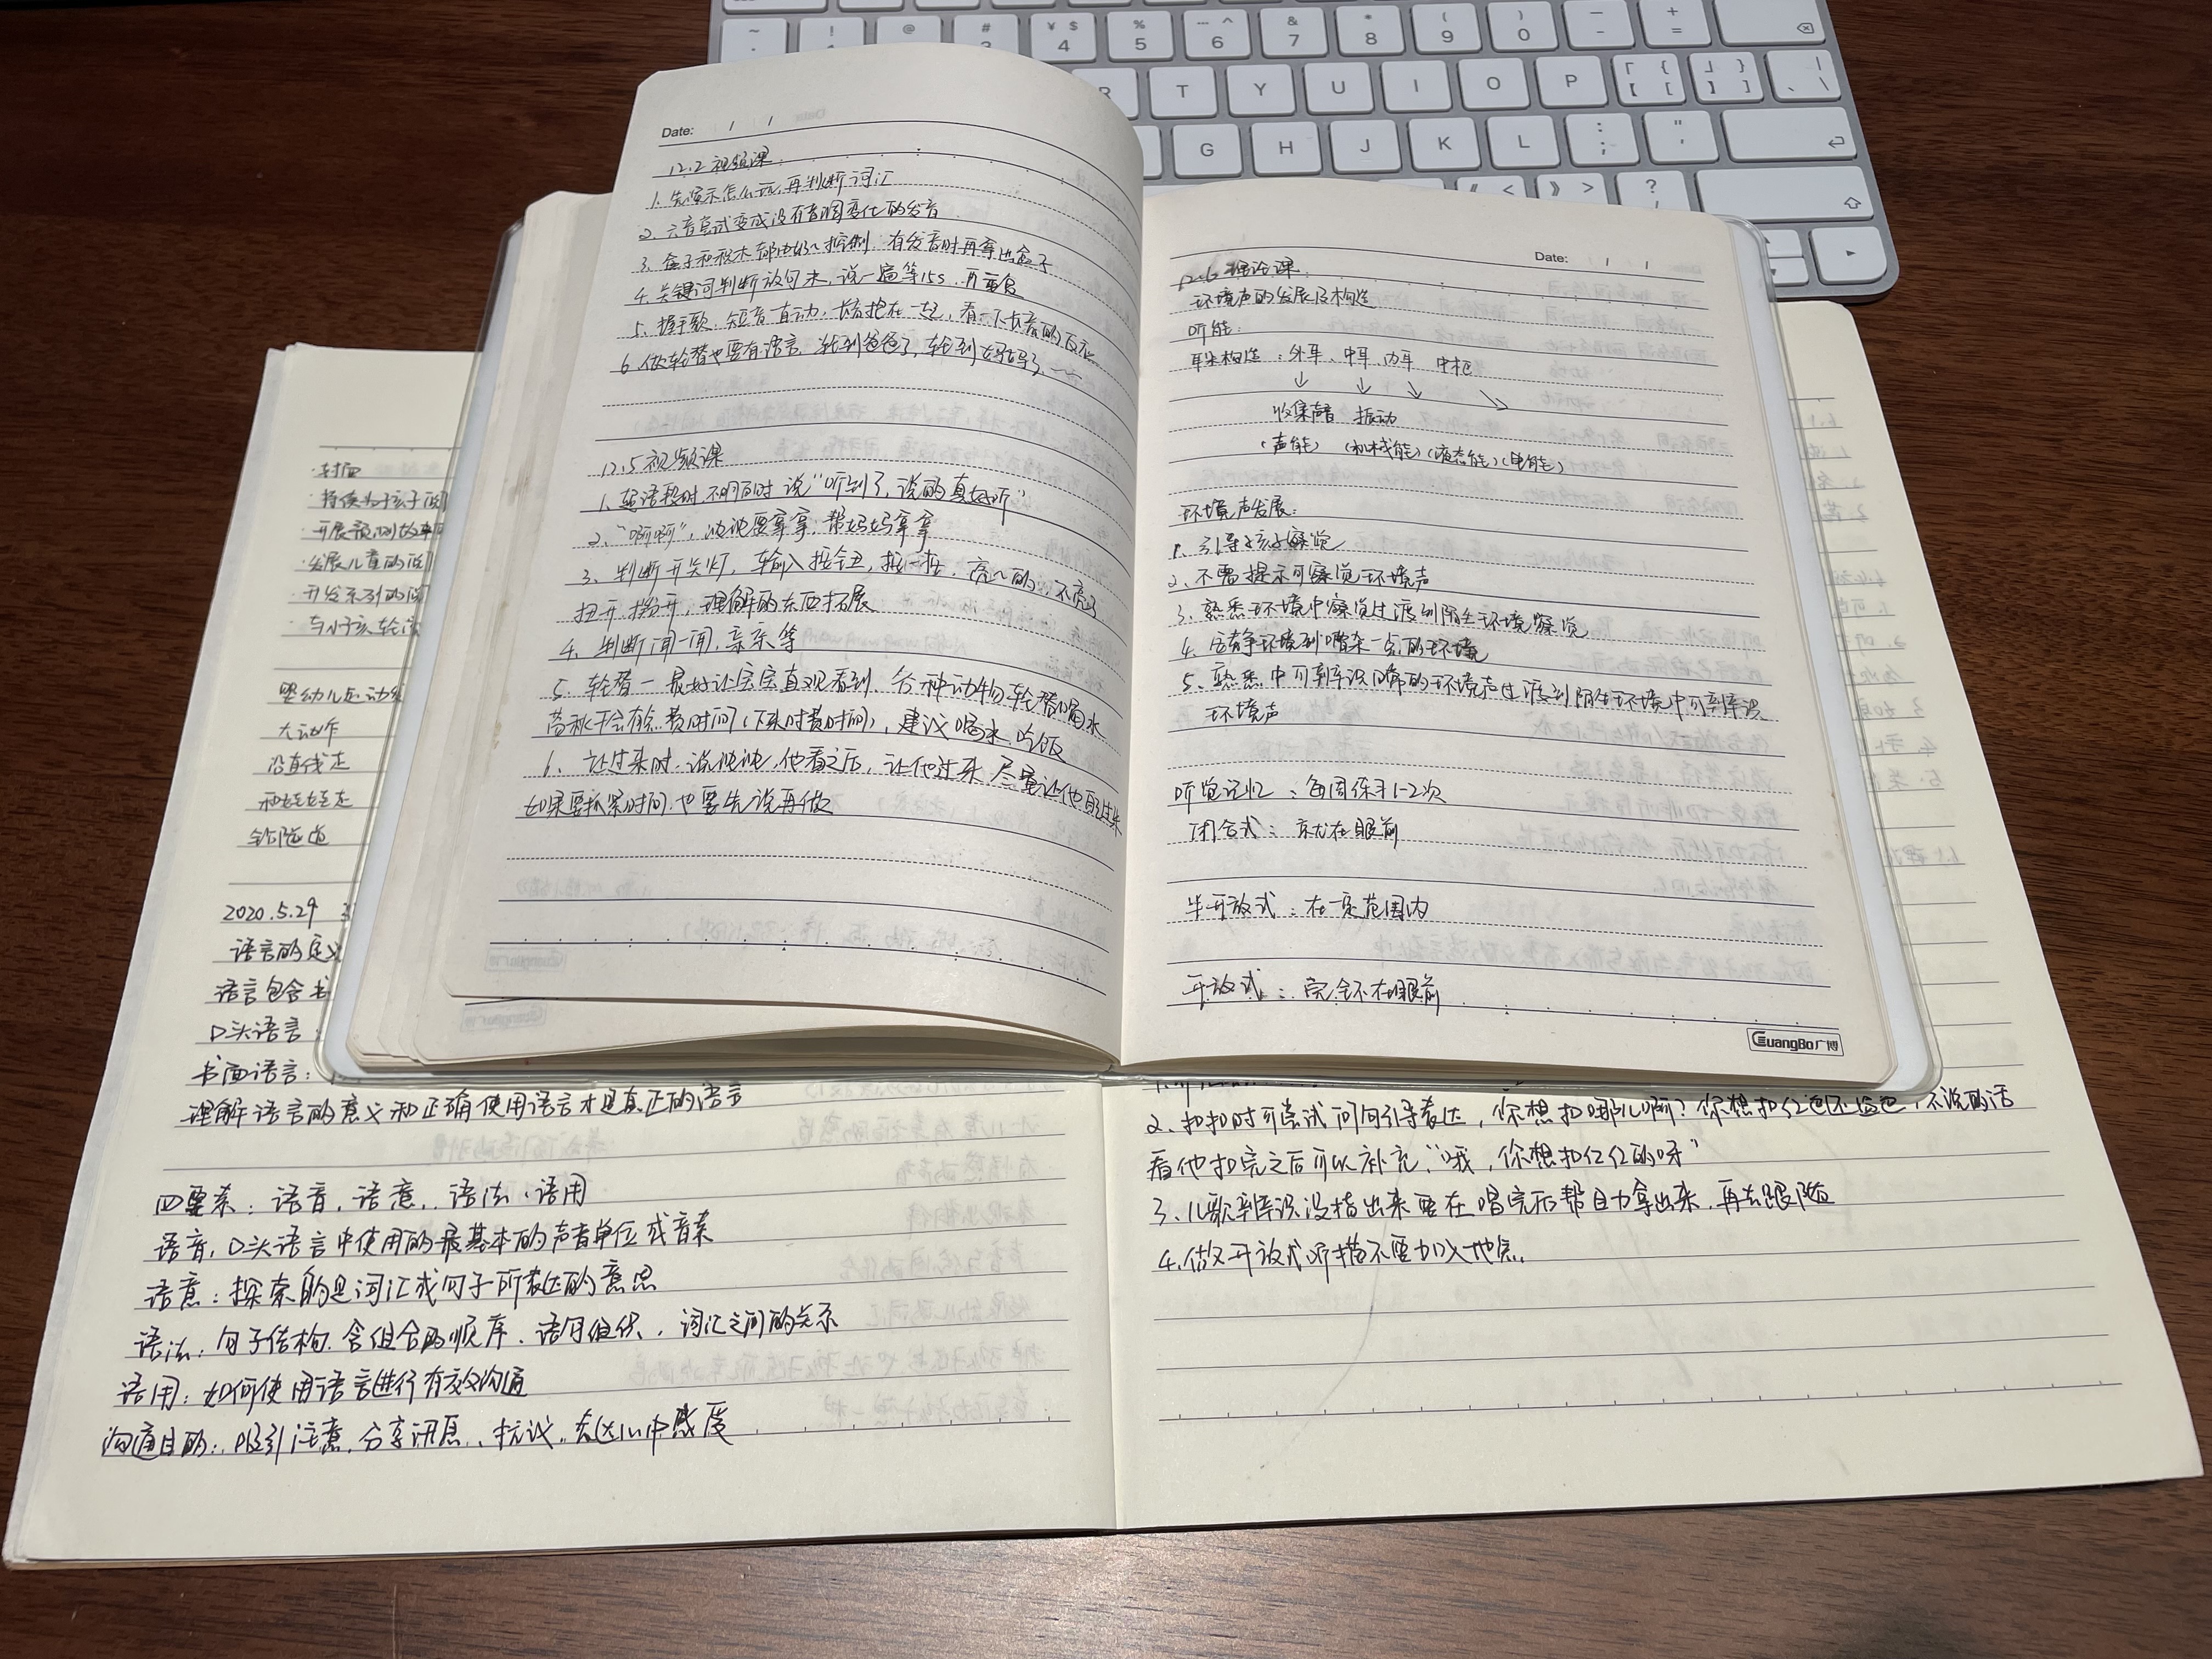 Date: / /
12.2 视频课:
1. 先演示怎么玩,再判断词汇
2. 六音尝试变成没有音调变化的发音
3. 盒子和积木都由妈~控制,有发音时再拿出盒子
4. 关键词判断放句末,说一遍等15s,再重复
5. 握手歌,短音直动,长音抱在一起,看一下长音的反应
6. 做轮替也要有语言,轮到爸爸了,轮到妈妈了,……
12.5 视频课
1. 学语段时,不明同时说“听到了,说的真好听”
2. “啊啊”,沌沌要拿拿,帮妈妈拿拿
3. 判断开关灯,输入按钮,按一按,亮~的,不亮了
扭开,掰开,理解的东西拓展
4. 判断闻一闻,亲亲等
5. 轮替 — 最好让宝宝直观看到,各种动物轮替喝水
荡秋千会有点费时间(下来时费时间),建议喝水,吃饭
6. 让过来时,说沌沌,他看之后,让他过来,尽量让他自己过来
如果要抓紧时间,也要先说再做
Date: / /
12.6 理论课:
环境声的发展及构造
听能:
耳朵构造:外耳、中耳、内耳 中枢
↓ ↓ ↓ ↘
收集声音 振动
(声能) (机械能)(液态能)(电能)
环境声发展:
1. 引导孩子察觉
2. 不需提示可察觉环境声
3. 熟悉环境中察觉过渡到陌生环境察觉
4. 安静环境到嘈杂一点的环境
5. 熟悉中可辨识清晰的环境声过渡到陌生环境中可辨识
环境声
听觉记忆:每周练习1-2次
闭合式:就在眼前
半开放式:在一定范围内
开放式:完全不在眼前
GuangBo广博
·封面
·开展预测故事
·发展儿童的
·开发系列的
·与小孩轮流
婴幼儿运动发
大动作
沿直线走
和娃娃走
钻隧道
2020.5.29
语言的定义
语言包含书
口头语言:
书面语言:
理解语言的意义和正确使用语言才是真正的语言
四要素:语音,语意,语法,语用
语音,口头语言中使用的最基本的声音单位或音素
语意:探索的是词汇或句子所表达的意思
语法:句子结构,含组合的顺序,语句组织,词汇之间的关系
语用:如何使用语言进行有效沟通
沟通目的:吸引注意,分享讯息,抗议,表达心中感受
2. 扣扣时可尝试问句引导表达,你想扣哪儿啊?你想扣红色还是色,不说的话
看他扣完之后可以补充,“哦,你想扣红红的呀”
3. 儿歌辨识没指出来要在唱完后帮自力拿出来,再去跟随
4. 做开放式听描不要加入地点.